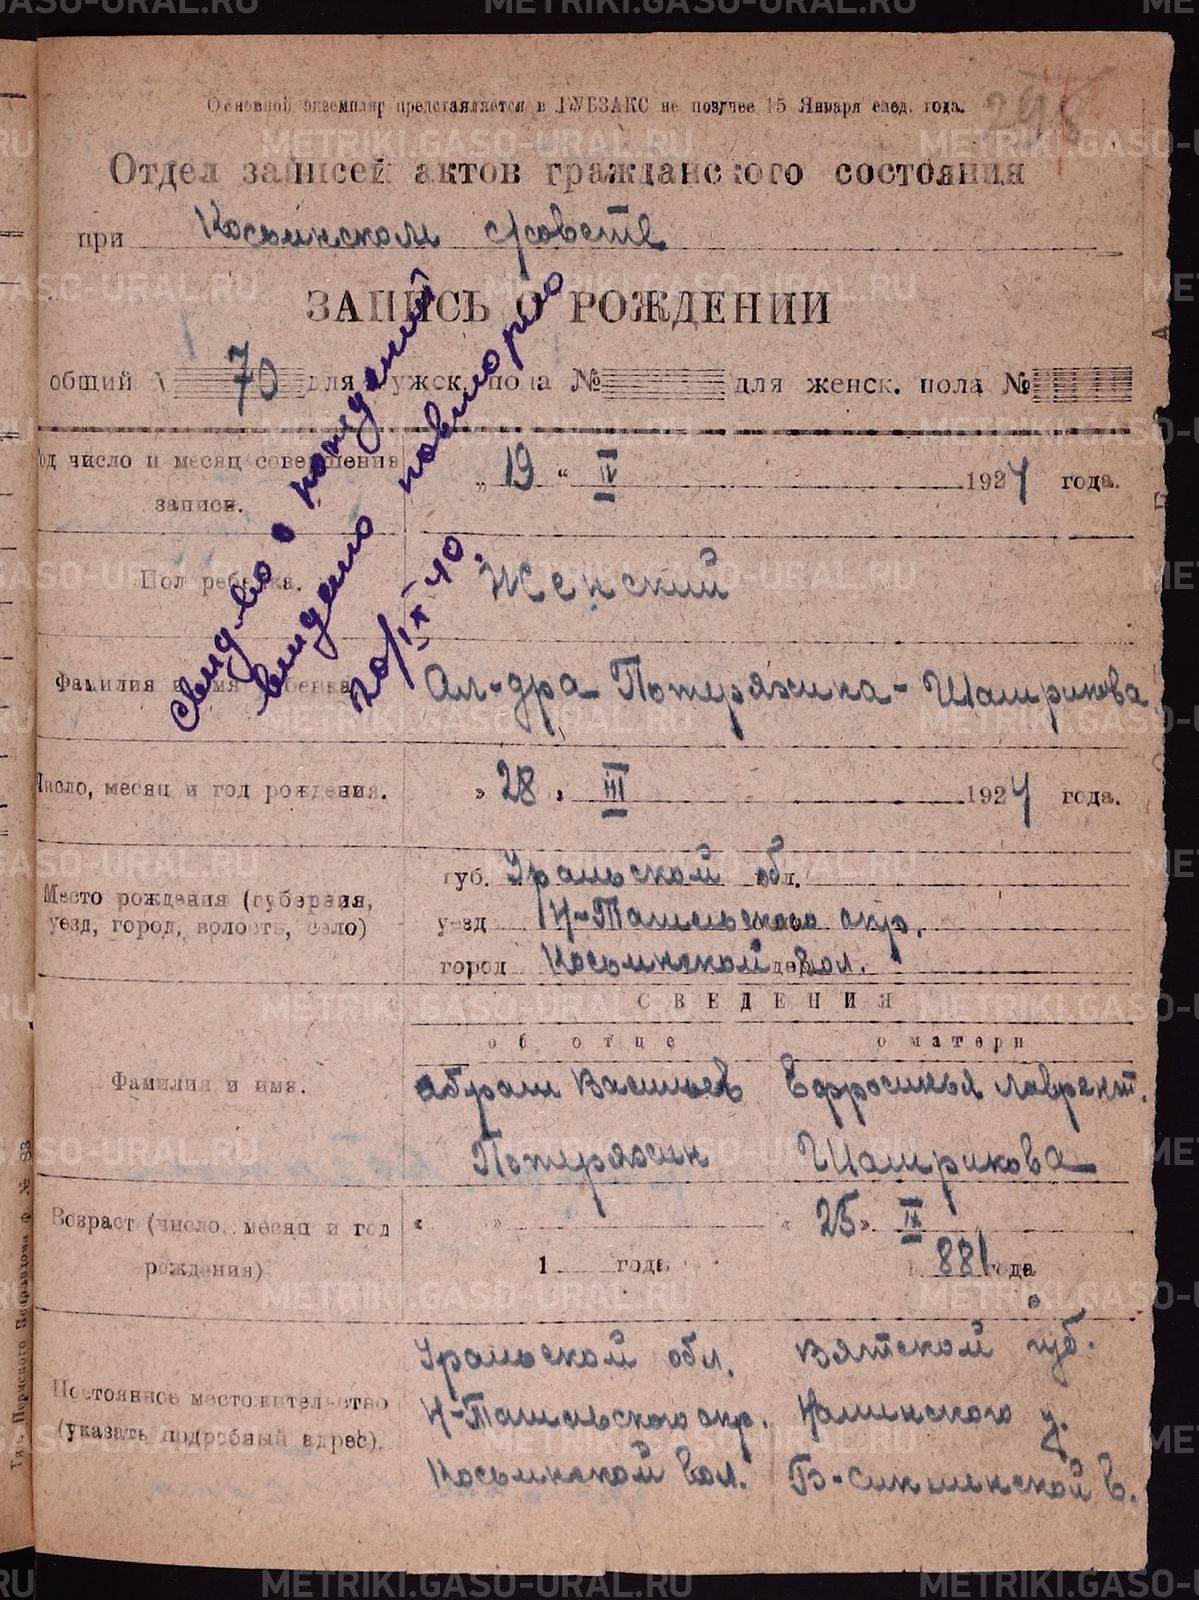 Основной экземпляр представляется в ГУБЗАКС не позднее 15 Января след. года.
Отдел записей актов гражданского состояния
при Косьинском с/совете
ЗАПИСЬ О РОЖДЕНИИ
общий № 70 для мужск. пола № для женск. пола №
Год число и месяц совершения записи.
„ 19 “ IV 1924 года.
Пол ребенка.
Женский
Фамилия и имя ребенка
Ал-дра Потеряхина - Шамрикова
Число, месяц и год рождения.
„ 28 „ III 1924 года.
Место рождения (губерния,
уезд, город, волость, село)
губ. Уральской обл.
уезд Н-Тагильского окр.
город Косьинской дер. вол.
СВЕДЕНИЯ
об отце
о матери
Фамилия и имя.
Абрам Васильев
Потеряхин
Ефросинья Лаврент.
Шамрикова
Возраст (число, месяц и год
рождения)
« »
1 года
« 25 » IX
1881 года
Постоянное местожительство
(указать подробный адрес).
Уральской обл.
Н-Тагильского окр.
Косьинской вол.
Вятской губ.
у.
свид-во о рождении
выдано повторно
20/IX 40.
Тип. Пермского Исправдома ф. № 88
METRIKI.GASO-URAL.RU